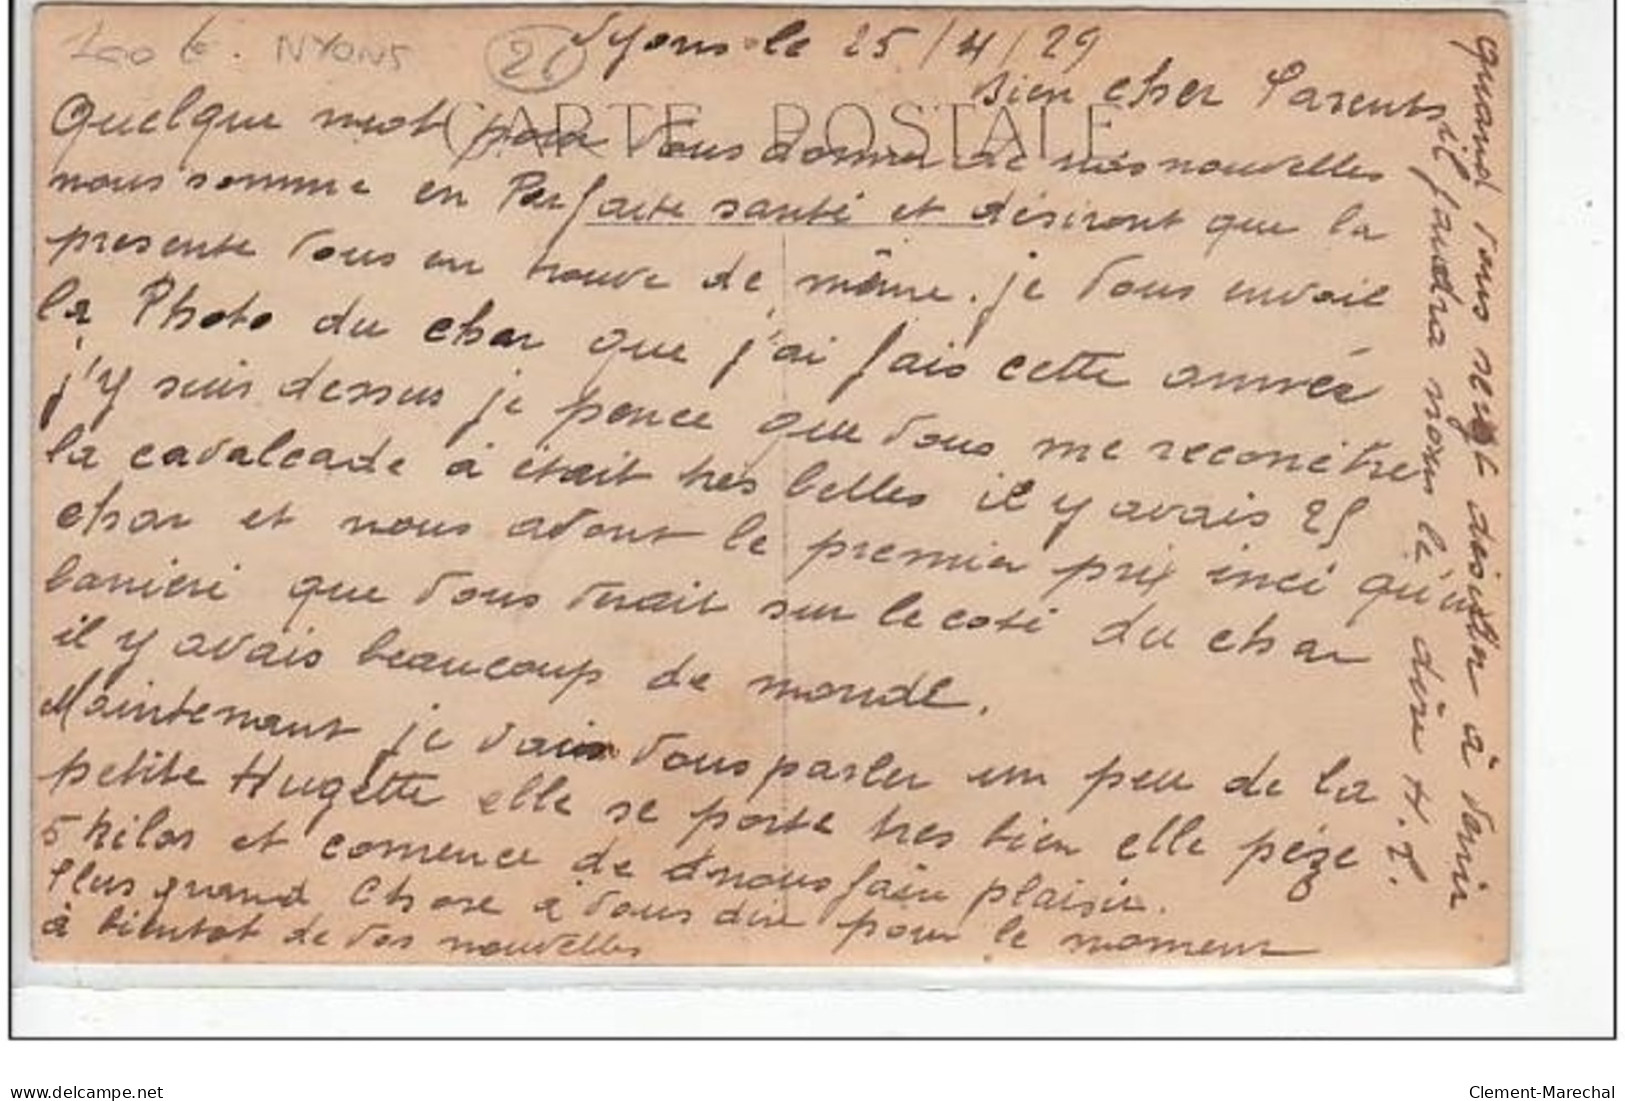 200 €. NYONS
26
Nyons le 25/4/29
Bien cher Parents
CARTE POSTALE
Quelque mot pour vous donner de nos nouvelles
nous somme en Parfaite santé et désiront que la
presente vous en trouve de même. je vous envoit
la Photo du char que j'ai fais cette année
j'y suis dessus je pence que vous me reconètre
la cavalcade à était tres belles il y avais 25
char et nous avont le premier prix inci qu'une
banieri que vous verait sur le coté du char
il y avais beaucoup de monde.
Maintenant je vais vous parler un peu de la
petite Hugette elle se porte tres bien elle pèze
5 kilos et comence de nous fair plaisir.
Plus grand chose à vous dire pour le moment
à bientot de vos nouvelles
quand vous serez desider à venir
il faudra nous le dire H. P.
delcampe.net
Clement-Marechal